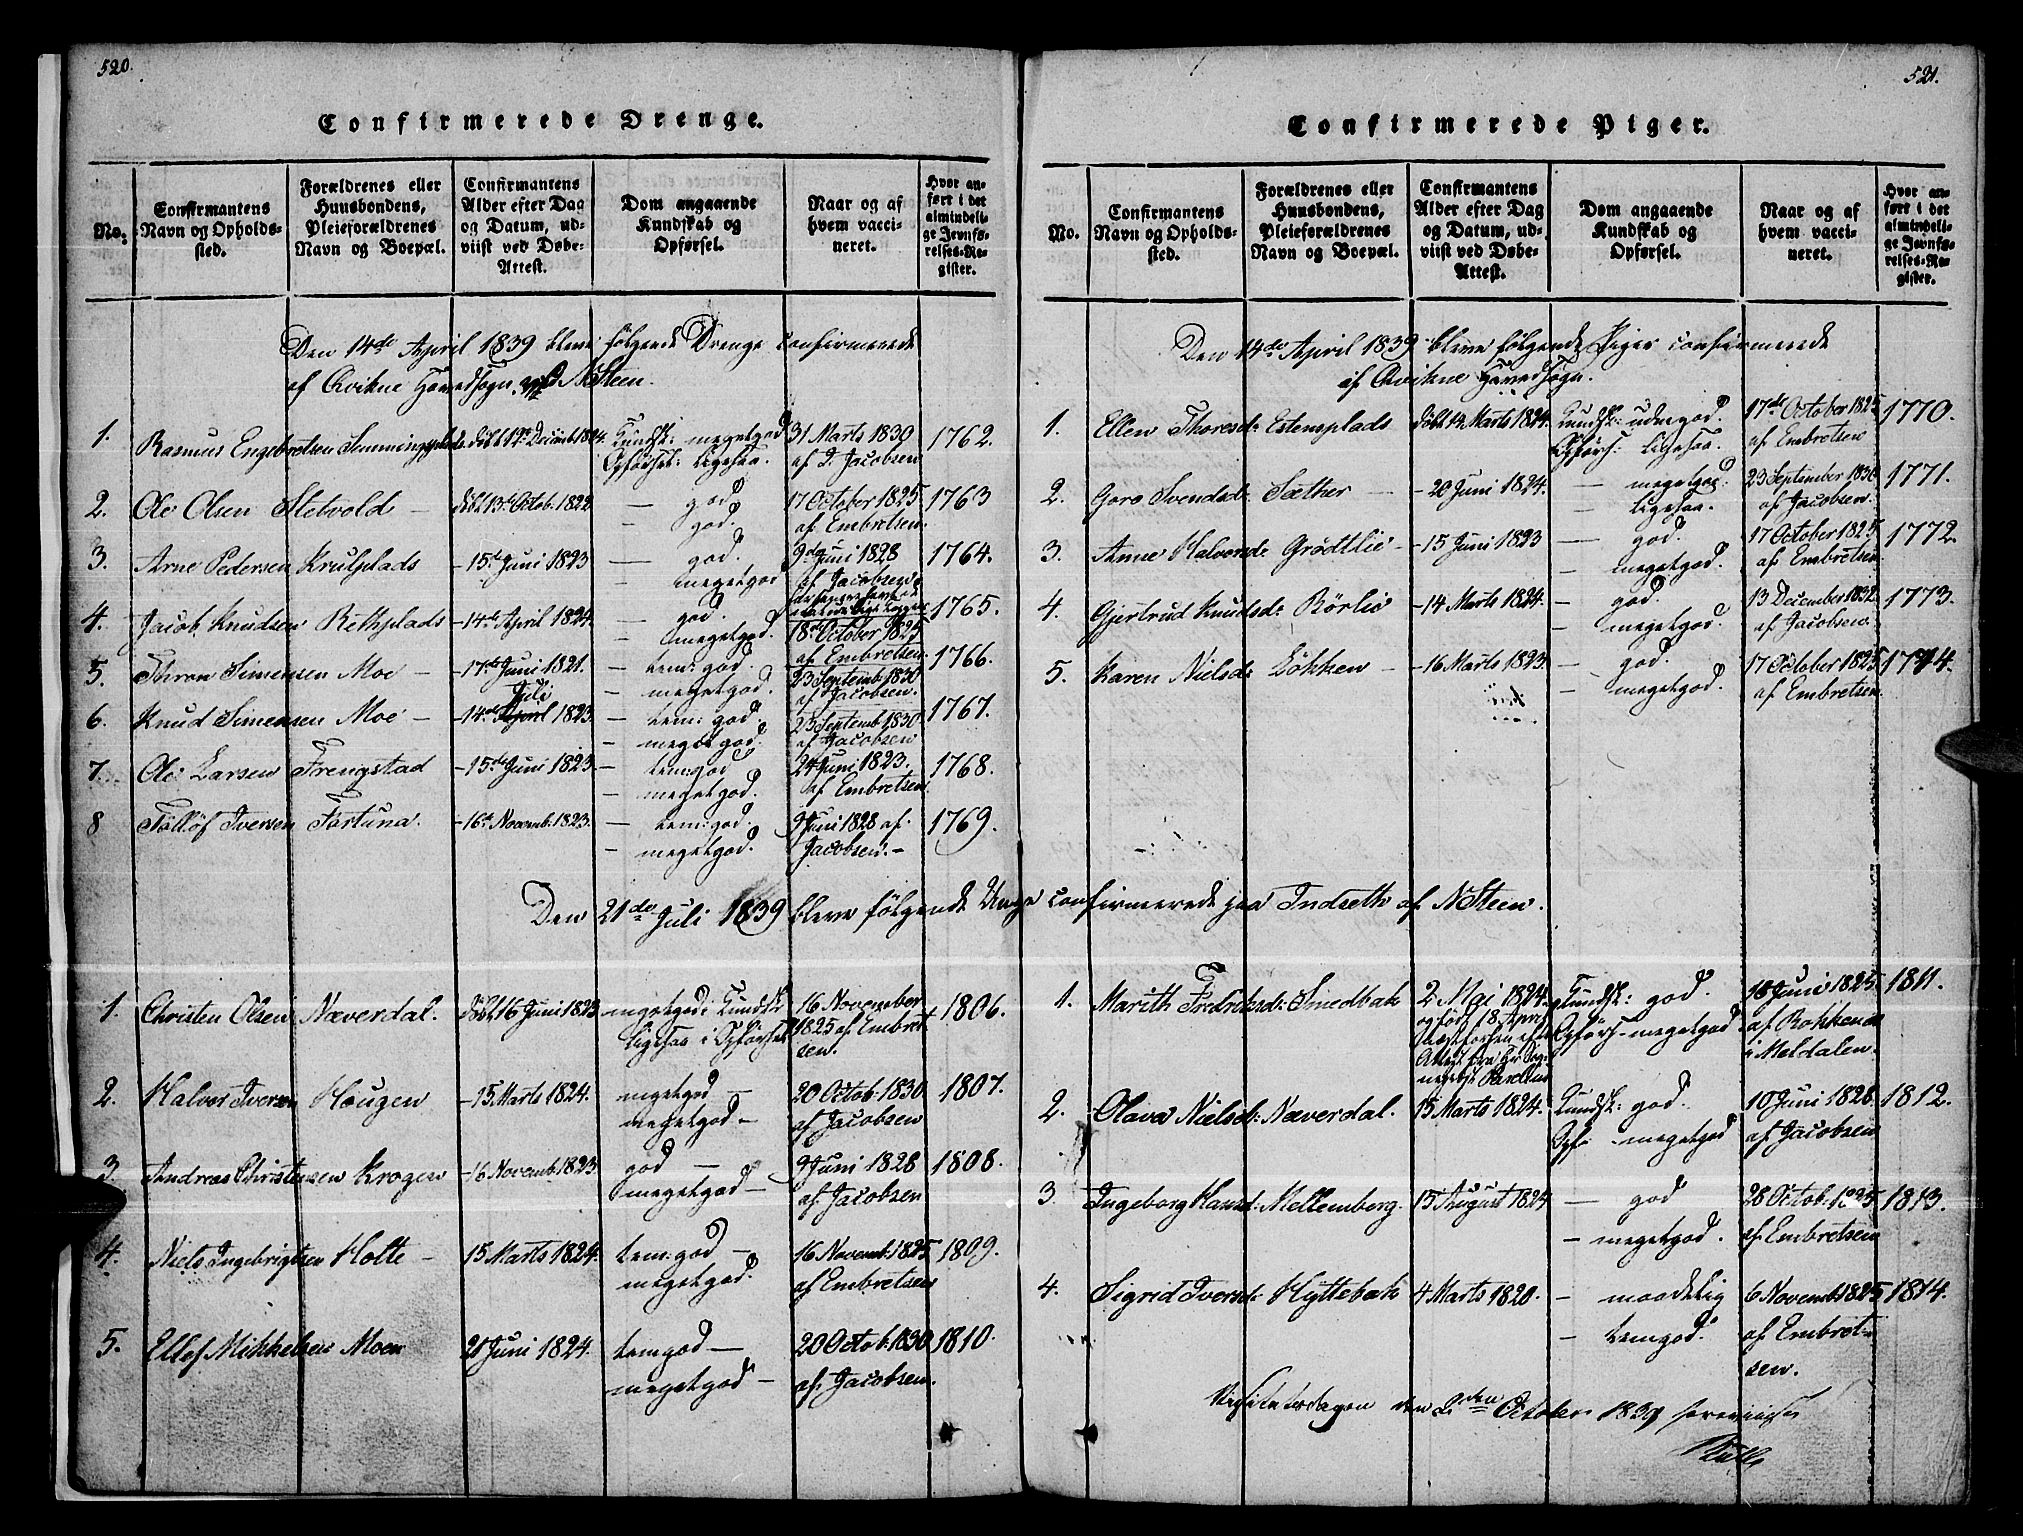 520.
Confirmerede Drenge.
No.
Confirmantens Navn og Opholdssted.
Forældrenes eller Huusbondens, Pleieforældrenes Navn og Boepæl.
Confirmantens Alder efter Dag og Datum, udviist ved Døbe-Attest.
Dom angaaende Kundskab og Opførsel.
Naar og af hvem vaccineret.
Hvor anført i det almindelige Jevnførelses-Register.
Den 14de April 1839 bleve følgende Drenge confirmerede
af Qvikne Hovedsogn ved NSteen.
1. Rasmus Engebretsen døbt 17de Decemb 1824. Kundsk: megetgod 31 Marts 1830 1762.
Opførsel: ligesaa. af D. Jacobsen
2. Ole Olsen Stetvold – døbt 13de Octob. 1822 — god 17 October 1825 1763
– god. af Embretsen.
3. Arne Pedersen Krulplads – 15de Juni 1823 — god. 9de Juni 1828 1764.
– megetgod af Jacobsen.
4. Jacob Knudsen Rekkplads – 14de April 1824 — god. 1765.
– megetgod. 18de October 1825
5. Thron Simensen Moe – – 17de Juni 1821. – tem: god. af Embretsen. 1766.
– megetgod. 23 Septemb 1830
Juli af Jacobsen.
6. Knud Simensen Moe – – 14de April 1823. – tem: god. 23 Septemb. 1830 1767.
– megetgod. af Jacobsen
7. Ole Larsen Frengstad – 15de Juni 1823. – tem: god 24 Juni 1823. 1768.
– megetgod. af Embretsen.
8 Tølløf Iversen Fortuna. – 16de Novemb. 1823. – tem: god. 9 Juni 1828 af 1769.
– megetgod. Jacobsen. –
Den 21de Juli 1839 bleve følgende Unge confirmerede paa Indseth af NSteen.
1. Christen Olsen Næverdal. døbt 16 Juni 1823 megetgod i Kundsk 16 November 1806.
ligesaa i Opførsel 1825 af Embret
sen.
2. Halvor Iversen Haugen – 15 Marts 1824. megetgod – 20 Octob. 1830 1807.
megetgod – af Jacobsen
3. Andreas Christensen Krogen – 16 Novemb. 1823 god – 9 Juni 1828 1808.
megetgod – af Jacobsen
4. Niels Ingebrigtsen Holte – 15 Marts 1824. tem: god – 16 Novemb. 1825 1809.
megetgod. af Embretsen
5. Ellef Mikkelsen Moen 20 Juni 1824. temgod – 20 Octob. 1830 1810.
megetgod – af Jacobsen.
521.
Confirmerede Piger.
No.
Confirmantens Navn og Opholdssted.
Forældrenes eller Huusbondens, Pleieforældrenes Navn og Boepæl.
Confirmantens Alder efter Dag og Datum, udviist ved Døbe-Attest.
Dom angaaende Kundskab og Opførsel.
Naar og af hvem vaccineret.
Hvor anført i det almindelige Jevnførelses-Register.
Den 14de April 1839 bleve følgende Piger confirmerede
af Qvikne Hovedsogn.
1. Ellen Thoresd: Estensplads døbt 14 Marts 1824. Kundsk: udmgod. 17de October 1825 1770.
Opførs: ligesaa. af Embretsen
2. Goro Svendsd: Sæther – – 20 Juni 1824. – megetgod. 23 September 1830 1771.
– ligesaa. af Jacobsen.
3. Anne Halvorsd: Grødtlie – – 15 Juni 1823 — god. 17 October 1825 1772.
– megetgod. af Embretsen
4. Gjertrud Knudsd: Rörlie – 14 Marts 1824. – god. 13 December 1832 1773.
– megetgod. af Jacobsen.
5. Karen Nielsd: Løkken – – 16 Marts 1823. – god. 17 October 1825 1774.
– megetgod. af Embretsen.
1. Marith Fredriksd: Smedbak 2 Mai 1824. Kundsk: god. 18 Juni 1825. 1811.
og født 18 April Opførs: megetgod af Rokkende
i Meldalen.
2. Olava Nielsd: Næverdal. 15 Marts 1824. Kundsk: god. 10 Juni 1828. 1812.
Opf: megetgod af Jacobsen
3. Ingeborg Hansd: Mellemberg. 15 August 1824 — god 28 Octob. 1825 1813.
– megetgod. af Embretsen
4. Sigrid Iversd: Hyttebak 4 Marts 1820. – maadelig 6 Novemb 1825 1814.
– temgod. af Embret-
sen.
Visitatsdagen den 2den October 1839